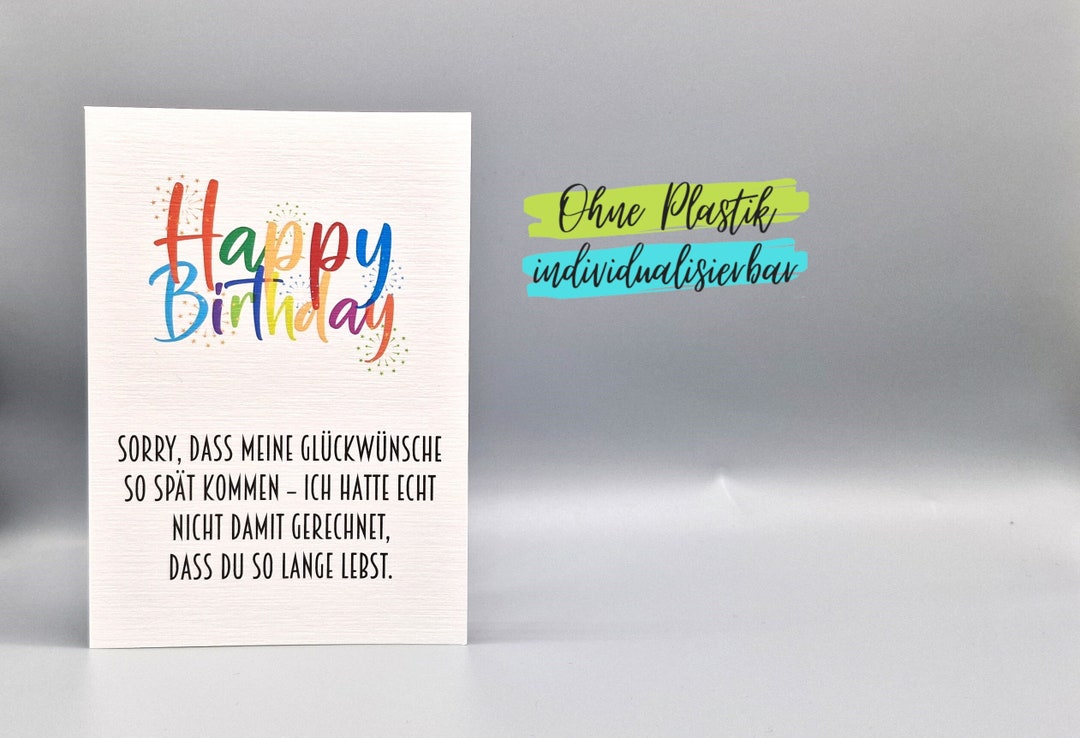 Happy
Birthday
SORRY, DASS MEINE GLÜCKWÜNSCHE
SO SPÄT KOMMEN – ICH HATTE ECHT
NICHT DAMIT GERECHNET,
DASS DU SO LANGE LEBST.
Ohne Plastik
individualisierbar